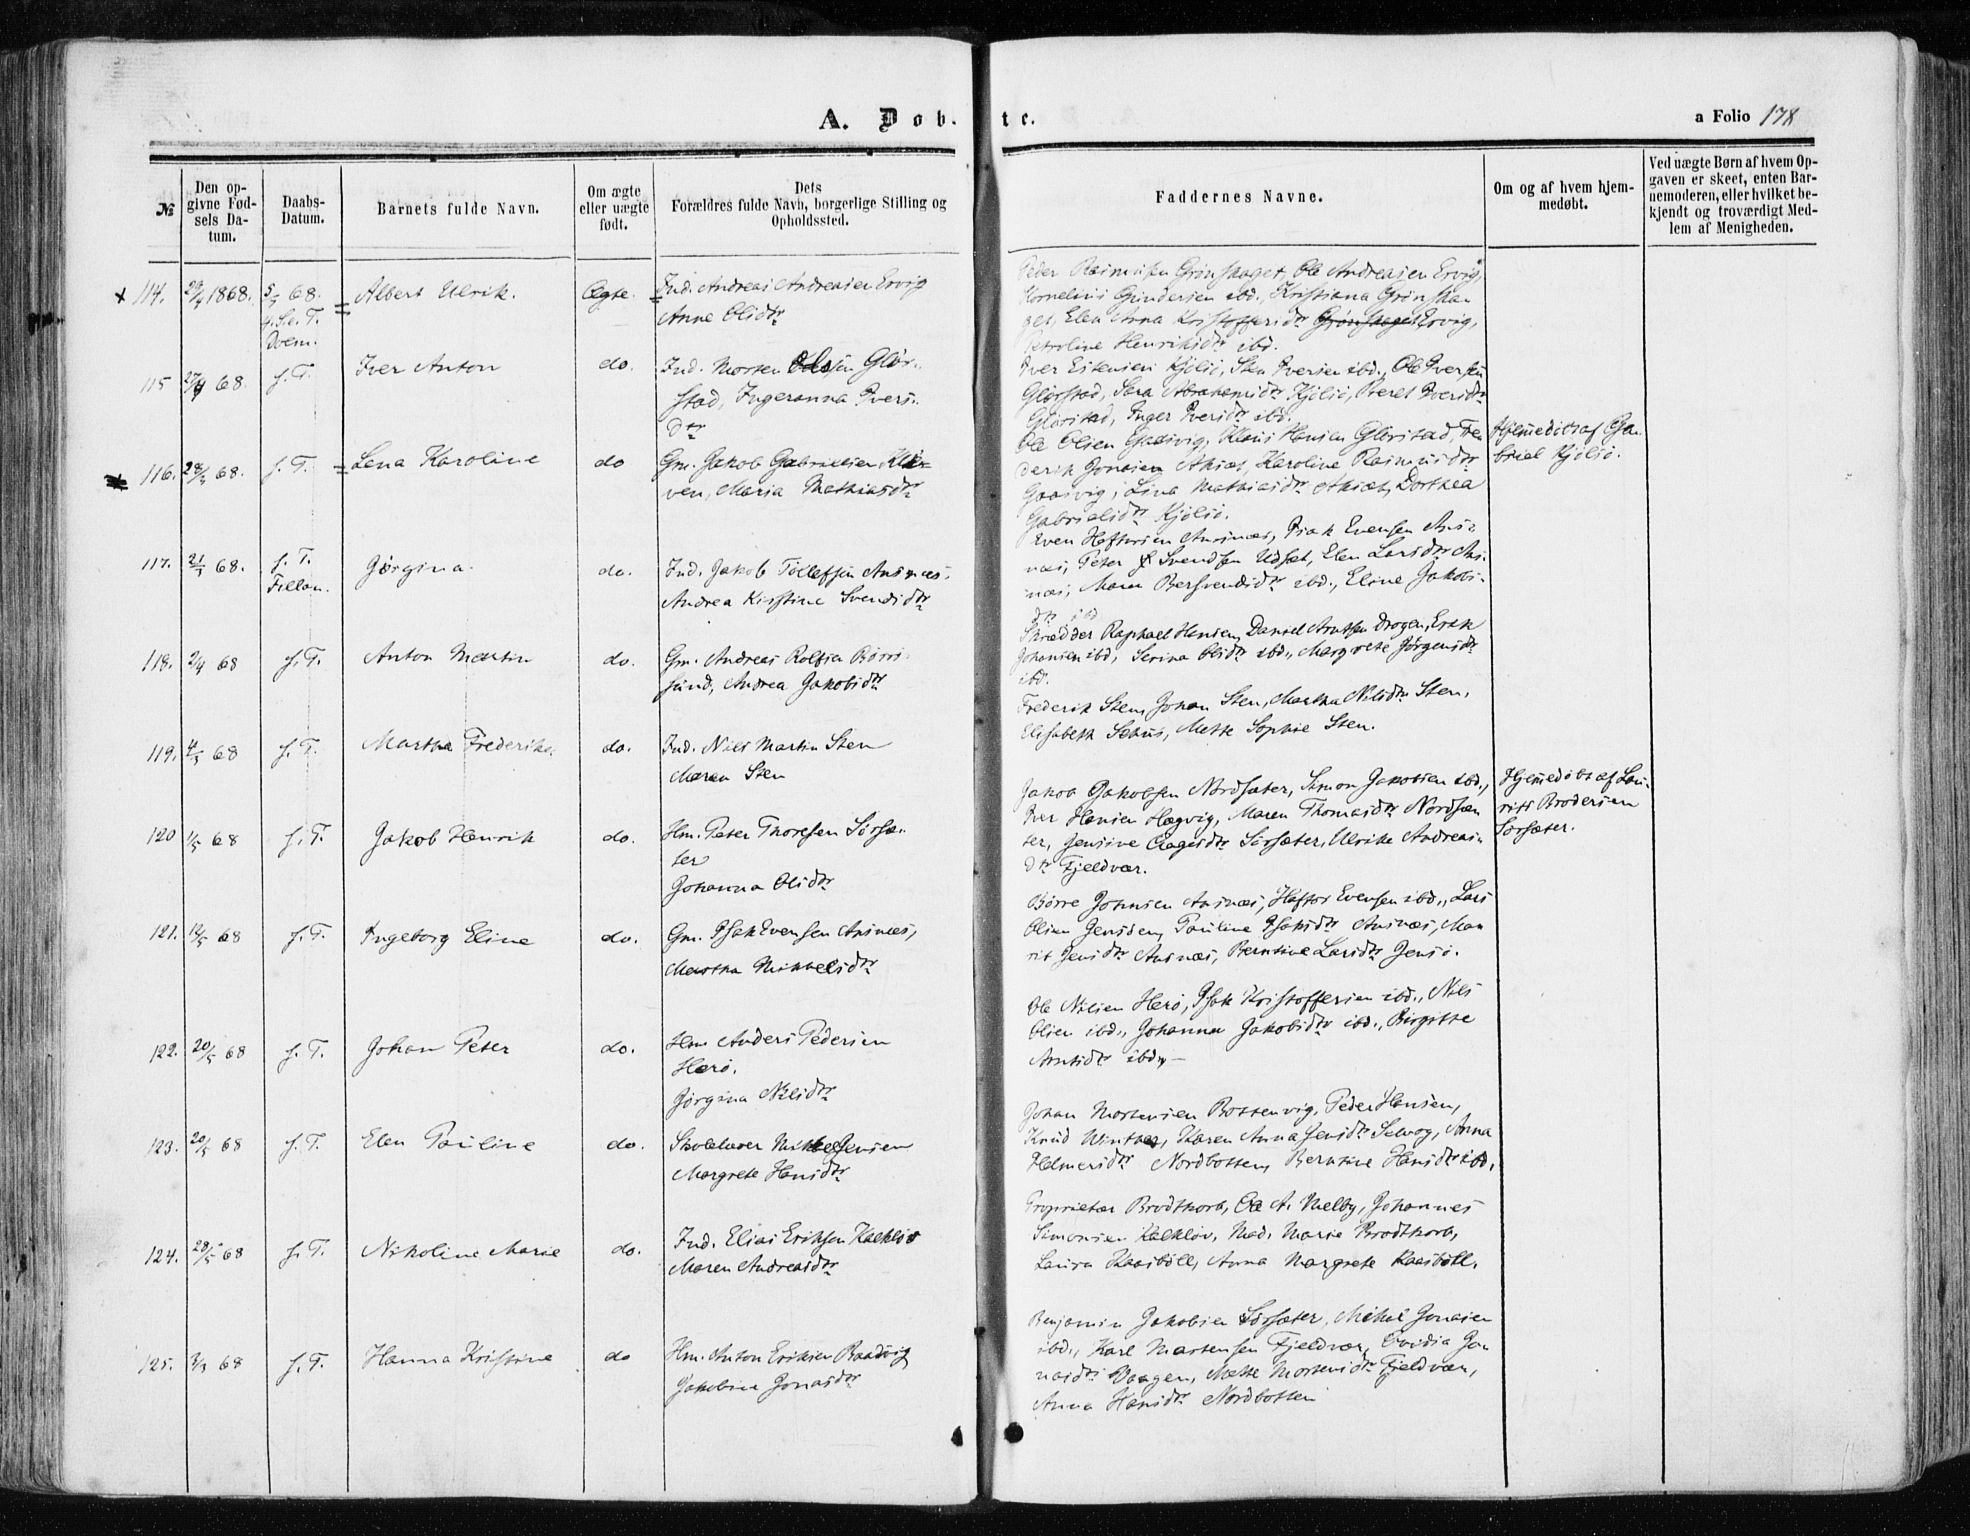 A. Døbte.
a Folio 178
№
Den op-
givne Fød-
sels Da-
tum.
Daabs-
Datum.
Barnets fulde Navn.
Om ægte
eller uægte
født.
Dets
Forældres fulde Navn, borgerlige Stilling og
Opholdssted.
Faddernes Navne.
Om og af hvem hjem-
medøbt.
Ved uægte Børn af hvem Op-
gaven er skeet, enten Bar-
nemoderen, eller hvilket be-
kjendt og troværdigt Med-
lem af Menigheden.
114. 29/4 1868. 5/5 68.
Albert Ulrik.
Ægte.
Ind. Andreas Andreasen Ervig
Anne Olsdtr
Peder Rasmusen Grønskaget, Ole Andreasen Ervig,
Kornelius Gundersen ibd., Kristiana Grønska-
get, Elen Anna Kristoffersdtr Grønskaget Ervig,
Petroline Henriksdtr ibd.
115 27/4 68. f. T.
Iver Anton
do.
Ind. Morten Olsen Glør-
stad, Ingeranna Ivers-
dtr
Iver Estensen Kjølsø, Sten Iversen ibd., Ole Iversen
Glørstad, Sara Abrahamsdtr Kjølsø, Beret Iversdtr
Glørstad, Inger Iversdtr ibd.
116. 28/3 68. f. T.
Lena Karoline
do
Gm. Jakob Gabrielsen Klø-
ven, Maria Mathiasdtr
Ole Olsen Gaasvig, Klaus Hansen Glørstad, Fre-
derik Jonasen Akset, Karoline Rasmusdtr
Gaasvig, Lina Mathiasdtr Akset, Dorthea
Gabrielsdtr Kjølsø.
Hjemmedøbt af Ga-
briel Kjølsø.
117. 21/3 68. f. T.
Fillan.
Jørgina.
do.
Ind. Jakob Tollefsen Ansnæs.
Andrea Kirstine Svendsdtr
Even Haftorsen Ansnæs, Isak Evensen Ans-
næs, Peter Svendsen Udset, Elen Larsdtr Ans-
næs, Maren Bersvendsdtr ibd., Eline Jakobs-
dtr ibd
118. 2/4 68 f. T.
Anton Martin
do.
Gm. Andreas Rolfsen Børø-
sund, Andrea Jakobsdtr
Skrædder Raphael Hansen, Daniel Arntsen Drogen, Erik
Johansen ibd, Serina Olsdtr ibd., Margrete Jørgensdtr
ibd.
119. 4/5 68 f. T.
Martha Frederika.
do.
Ind. Nils Martin Sten
Maren Sten
Frederik Sten, Johan Sten, Martha Nilsdtr Sten,
Elisabeth Sæhus, Mette Sophie Sten.
120 1/5 68 f. T.
Jakob Henrik
do.
Hm. Peter Thoresen Sørsæ-
ter
Johanna Olsdtr
Jakob Jakobsen Nordsæter, Simon Jakobsen ibd.,
Iver Hansen Hægvig, Maren Thomasdtr Nordsæ-
ter, Jensine Aagesdtr Sørsæter, Ulrike Andreas-
dtr Fjeldvær.
Hjemmedøbt af Lau-
rits Brodersen
Sørsæter.
121. 14/5 68 f. T.
Ingeborg Eline
do.
Gm. Isak Evensen Ansnæs,
Martha Mikkelsdtr
Børre Johnsen Ansnæs, Haftor Evensen ibd., Lars
Olsen Jensøen, Pauline Isaksdtr Ansnæs, Ma-
rit Jensdtr Ansnæs, Berntine Larsdtr Jensø.
122. 20/5 68 f. T.
Johan Peter
do.
Hm Anders Pedersen
Herø.
Jørgina Nilsdtr
Ole Nilsen Herø, Isak Kristoffersen ibd., Nils
Olsen ibd., Johanna Jakobsdtr ibd., Birgitte
Arntsdtr ibd.—
123. 20/5 68 f. T.
Elen Pauline
do.
Skolelærer Mikkel Jensen
Margrete Hansdtr
Johan Mortensen Bottenvig, Peder Hansen,
Knud Winther, Karen Anna Jensdtr Selvog, Anna
Helmersdtr Nordbotten, Berntine Hansdtr ibd.
124. 28/5 68 f. T.
Nikoline Marie
do.
Ind. Elias Eriksen Kalkløv
Maren Andreasdtr
Proprietær Brodtkorb, Ole A. Melby, Johannes
Simonsen Kalkløv, Mad. Marie Brodtkorb,
Laura Kaasbøll, Anna Margrete Kaasbøll.
125. 2/3 68 f. T.
Hanna Kristine
do
Hm. Anton Eriksen Baadvig
Jakobine Jonasdtr
Benjamin Jakobsen Sørsæter, Mikal Jonasen
ibd., Karl Martensen Fjeldvær, Ovidia Jo-
nasdtr Vaagen, Mette Mortensdtr Fjeldvær,
Anna Hansdtr Nordbotten